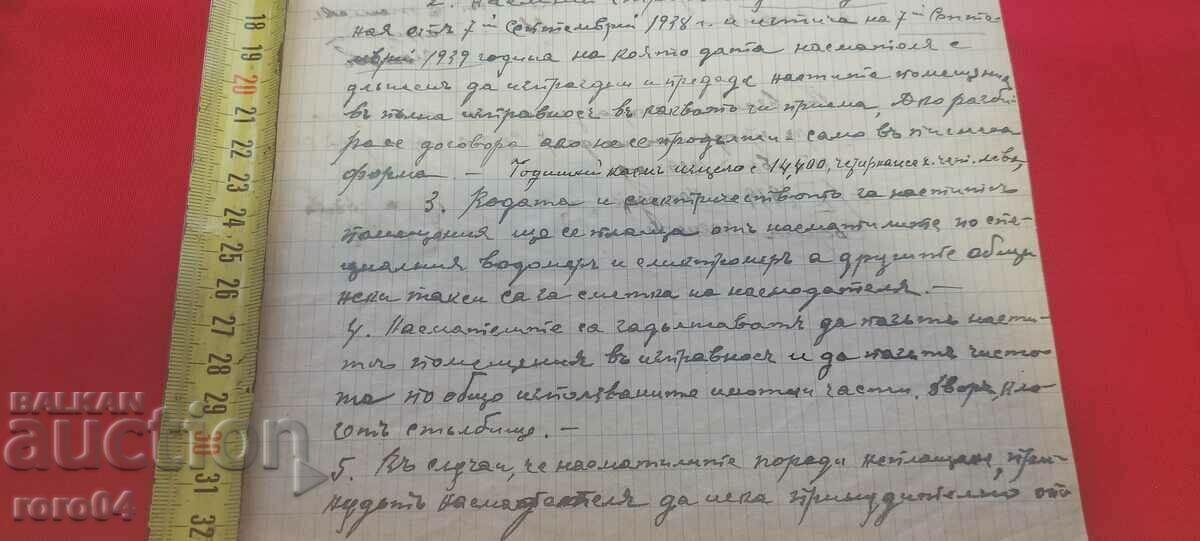 2. Наемния
ная отъ 7-й Септемврий 1938 г. и истича на 7-й Септе-
мврий 1939 година на която дата наемателя е
длъженъ да изпраздни и предаде наетите помещения
въ пълна исправность въ каквато ги приема, Ако
договора ако не се продължи само въ писмена
форма. — Годишний наемъ 14,400, четиринаесе х. чет. лева
3. Водата и електричеството за наетитѣ
помещения ще се плаща отъ наемателите по спе-
циалния водомеръ и електромеръ а другите общи-
нски такси са за сметка на наемодателя. —
4. Наемателите са задължаватъ да пазятъ наети-
тѣ помещения въ исправность и да пазятъ чисто-
та по общо използваните имотни части. дворъ,
стълбище. —
5. Въ случаи, че наемателите поради неплащане, при-
нудятъ наемодателя да иска принудително
18
19
20
21
22
23
24
25
26
27
28
29
30
31
32
BALKAN
auction
roro04